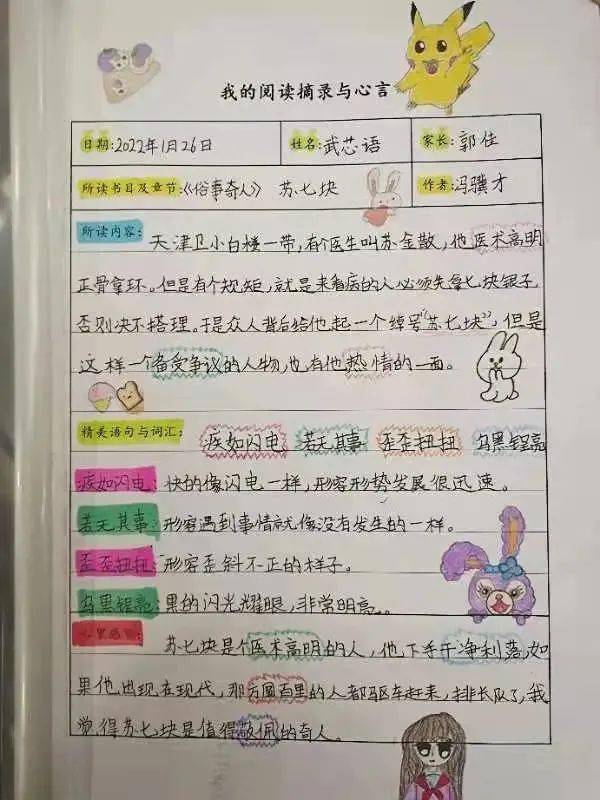 我的阅读摘录与心言
日期:2022年1月26日 姓名:武芯语 家长:郭佳
所读书目及章节:《俗事奇人》 苏七块 作者:冯骥才
所读内容: 天津卫小白楼一带,有个医生叫苏金散,他医术高明
正骨拿环。但是有个规矩,就是来看病的人必须先拿七块银子,
否则决不搭理。于是众人背后给他起一个绰号“苏七块”,但是
这样一个备受争议的人物,也有他热情的一面。
精美语句与词汇: 疾如闪电 若无其事 歪歪扭扭 乌黑锃亮
疾如闪电:快的像闪电一样,形容形势发展很迅速。
若无其事:形容遇到事情就像没有发生的一样。
歪歪扭扭:形容歪斜不正的样子。
乌黑锃亮:黑的闪光耀眼,非常明亮。
心里感言: 苏七块是个医术高明的人,他下手干净利落,如
果他出现在现代,那方圆百里的人都驱车赶来,排长队了,我
觉得苏七块是值得敬佩的奇人。